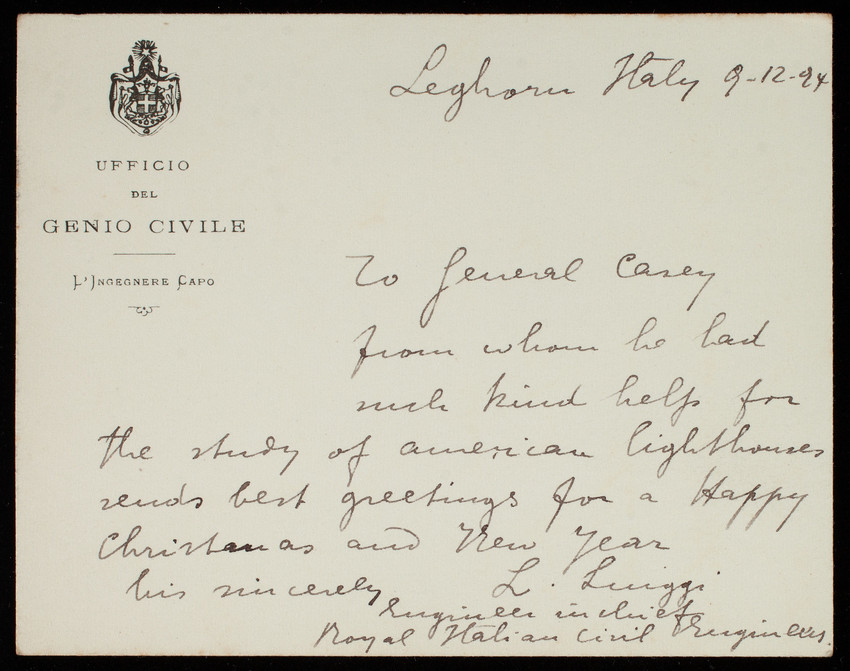 Leghorn Italy 9-12-94
UFFICIO
DEL
GENIO CIVILE
L'INGEGNERE CAPO
To General Casey
from whom he had
such kind help for
the study of american lighthouses
sends best greetings for a Happy
Christmas and New Year
his sincerely L. Luiggi
Engineer in chief
Royal Italian Civil Engineers.